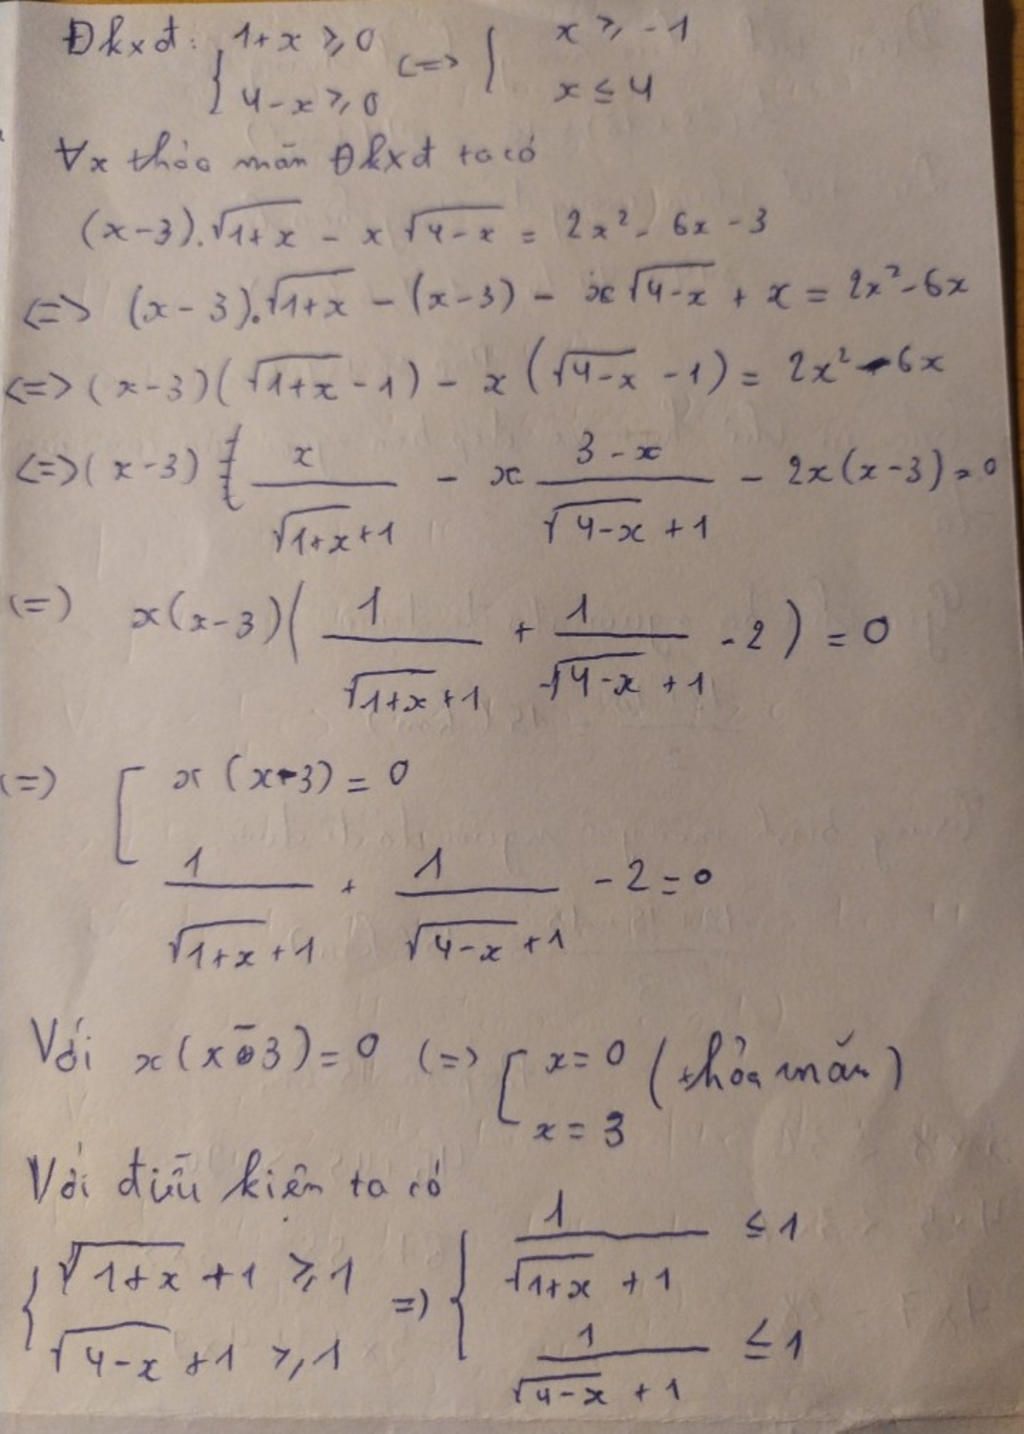 Đkxđ: { 1+x ≥ 0 <=> { x ≥ -1
4-x ≥ 0 x ≤ 4
∀x thỏa mãn Đkxđ ta có
(x-3).√(1+x) - x√(4-x) = 2x² - 6x - 3
<=> (x-3).√(1+x) - (x-3) - x√(4-x) + x = 2x² - 6x
<=> (x-3)(√(1+x) - 1) - x(√(4-x) - 1) = 2x² - 6x
<=> (x-3) x/(√(1+x)+1) - x (3-x)/(√(4-x)+1) - 2x(x-3) = 0
(=) x(x-3)(1/(√(1+x)+1) + 1/(√(4-x)+1) - 2) = 0
(=) [ x(x-3) = 0
1/(√(1+x)+1) + 1/(√(4-x)+1) - 2 = 0
Với x(x-3) = 0 (=> [ x = 0 (thỏa mãn)
x = 3
Với điều kiện ta có
{ √(1+x) + 1 ≥ 1 =) { 1/(√(1+x)+1) ≤ 1
√(4-x) + 1 ≥ 1 1/(√(4-x)+1) ≤ 1